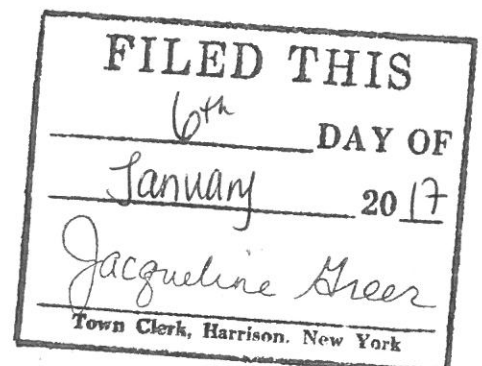 FILED THIS
6th DAY OF
January 2017
Jacqueline Greer
Town Clerk, Harrison. New York